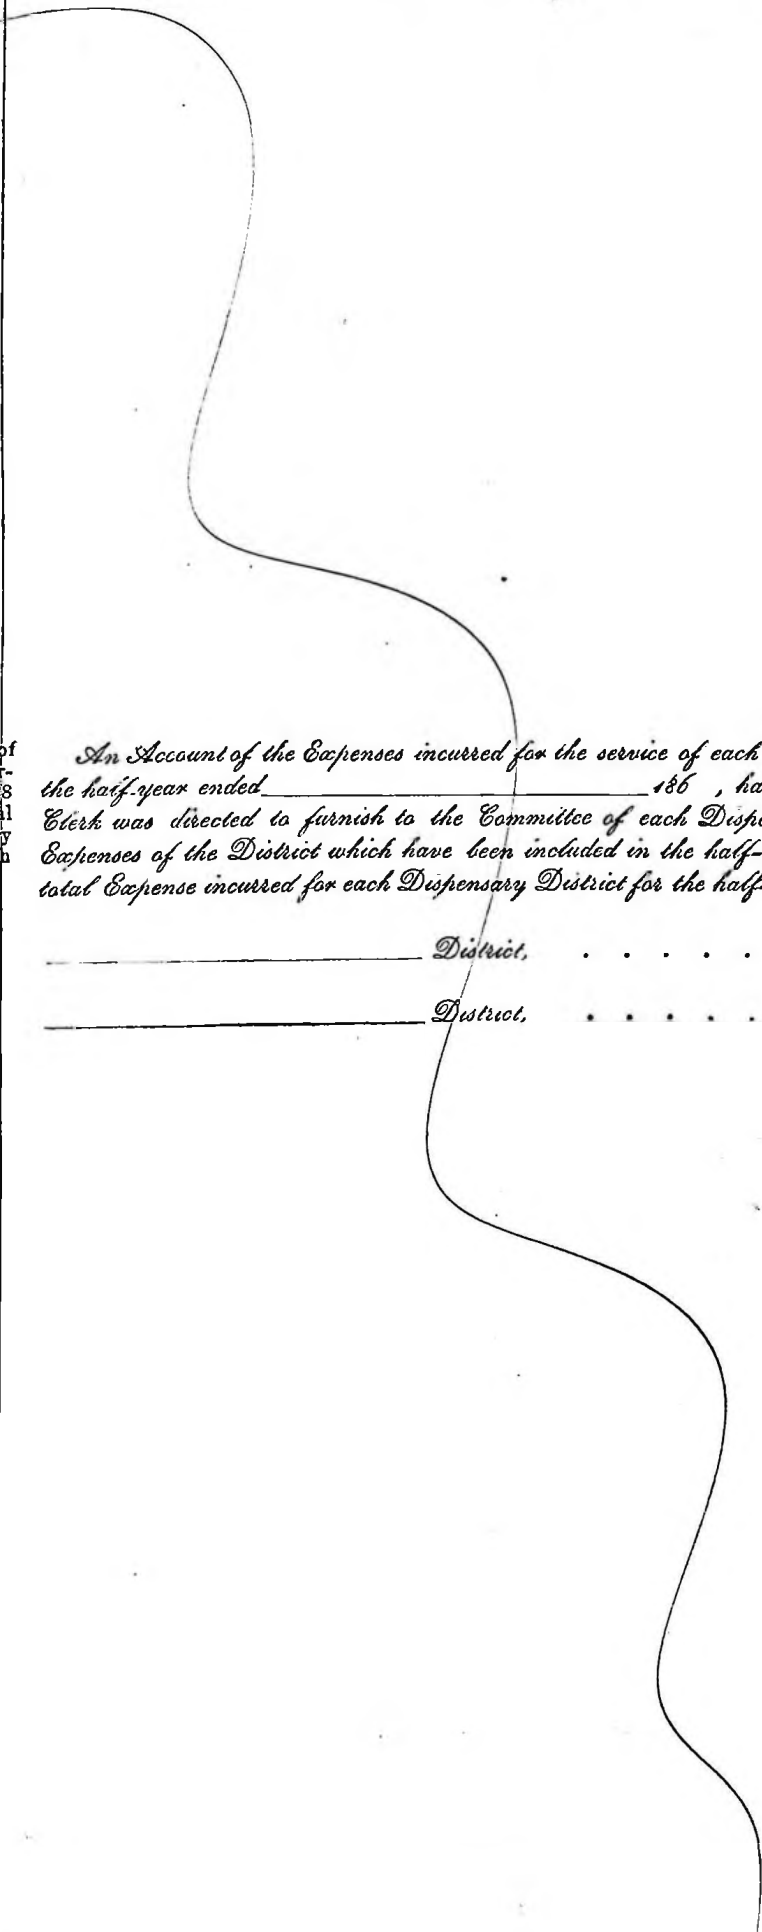 An Account of the Expenses incurred for the service of each
the half-year ended 186 , ha
Clerk was directed to furnish to the Committee of each Dispe
Expenses of the District which have been included in the half-
total Expense incurred for each Dispensary District for the half-
District, . . . . .
District, . . . . .
of
r-
8
al
y
h